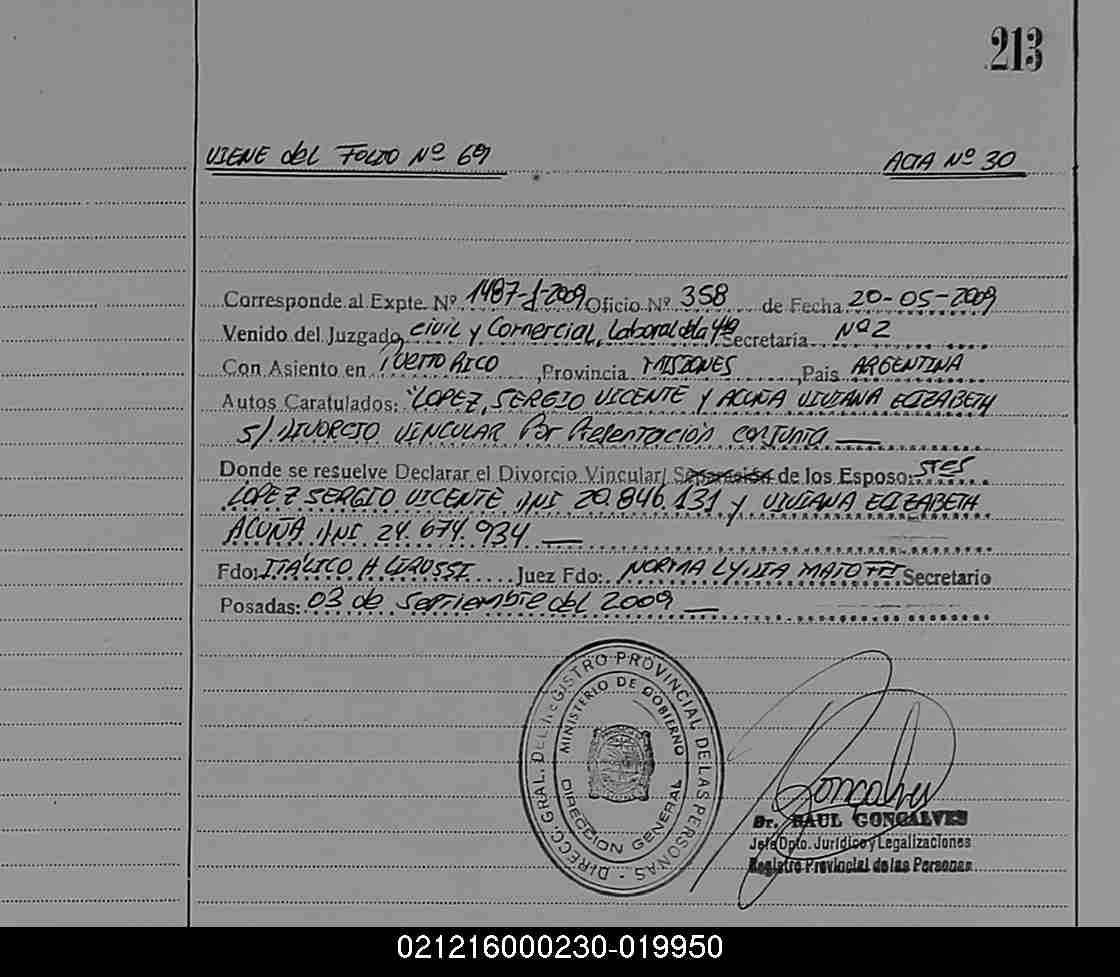 213
VIENE del FOLIO Nº 69 ACTA Nº 30
Corresponde al Expte. Nº 1487-J-2009 Oficio Nº 358 de Fecha 20-05-2009
Venido del Juzgado Civil y Comercial, Laboral de la 4ta Secretaría Nº 2
Con Asiento en Puerto Rico, Provincia MISIONES, Pais ARGENTINA
Autos Caratulados: "LOPEZ, SERGIO VICENTE y ACUÑA VIVIANA ELIZABETH
S/ DIVORCIO VINCULAR Por Presentación conjunta.
Donde se resuelve Declarar el Divorcio Vincular/ Separación de los Esposo:
LOPEZ SERGIO VICENTE DNI 20.846.131 y VIVIANA ELIZABETH
ACUÑA DNI 24.674.934
Fdo: ITALICO H Juez Fdo: NORMA LYDIA Secretario
Posadas: 03 de Septiembre del 2009
DIRECC. GRAL. DEL REGISTRO PROVINCIAL DE LAS PERSONAS -
MINISTERIO DE GOBIERNO
DIRECCION GENERAL
Gonçalves
Dr. RAUL GONÇALVES
Jefe Dpto. Jurídico y Legalizaciones
Registro Provincial de las Personas
021216000230-019950